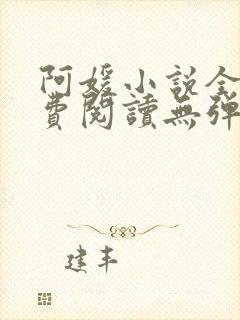 阿媛小說全
費閱讀無彈
建丰